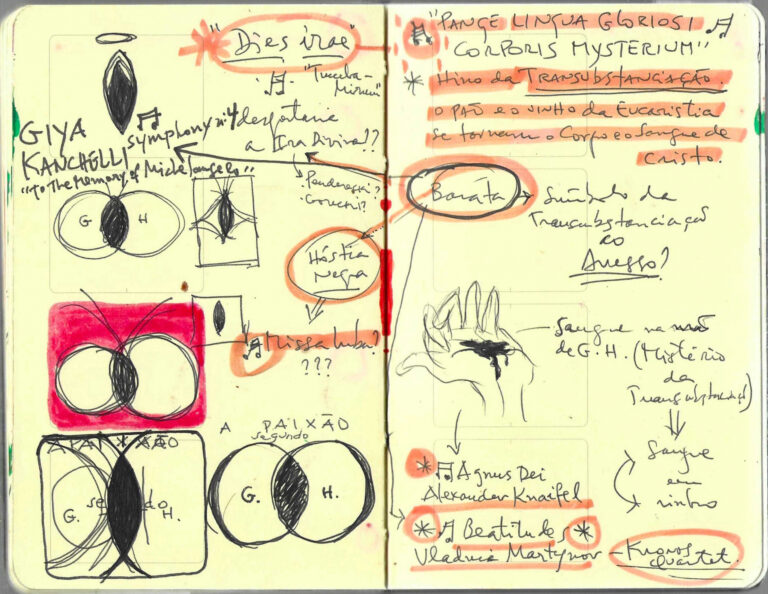 "Dies irae"
"Tuuba-
Mirum"
GIYA
KANCHELLI
symphony nº4
despertaria
a Ira Divina??
"To The Memory of Michelangelo"
Penderecki?
G. H.
Hóstia
Negra
Missa Luba?
???
A PAIXÃO
segundo
G. H.
A PAIXÃO
segundo
G. H.
"PANGE LINGUA GLORIOSI
CORPORIS MYSTERIUM"
* Hino da TRANSUBSTANCIAÇÃO.
O PÃO E O VINHO da EUCARISTIA
se tornam o Corpo e o Sangue de
CRISTO.
Barata
Símbolo da
Transubstanciação
ao
Avesso?
Sangue na mão
de G.H. (Mistério
da
Transubstanciação)
Sangue
em
vinho
* Agnus Dei
Alexander Knaifel
* Beatitudes *
Vladimir Martynov – Kronos
Quartet.